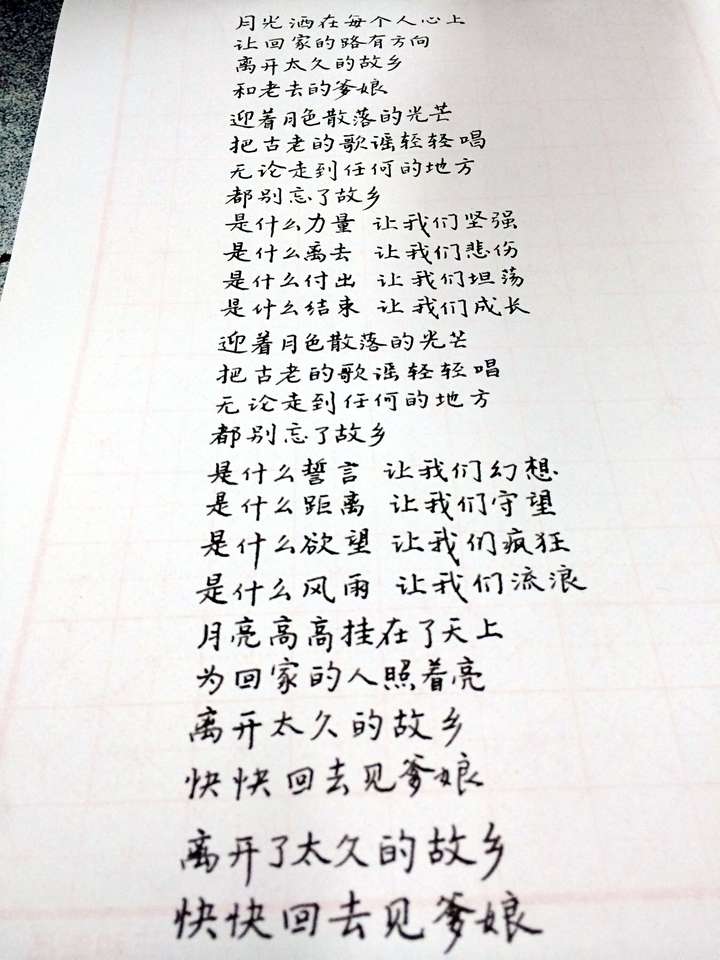 月光洒在每个人心上
让回家的路有方向
离开太久的故乡
和老去的爹娘
迎着月色散落的光芒
把古老的歌谣轻轻唱
无论走到任何的地方
都别忘了故乡
是什么力量 让我们坚强
是什么离去 让我们悲伤
是什么付出 让我们坦荡
是什么结束 让我们成长
迎着月色散落的光芒
把古老的歌谣轻轻唱
无论走到任何的地方
都别忘了故乡
是什么誓言 让我们幻想
是什么距离 让我们守望
是什么欲望 让我们疯狂
是什么风雨 让我们流浪
月亮高高挂在了天上
为回家的人照着亮
离开太久的故乡
快快回去见爹娘
离开了太久的故乡
快快回去见爹娘